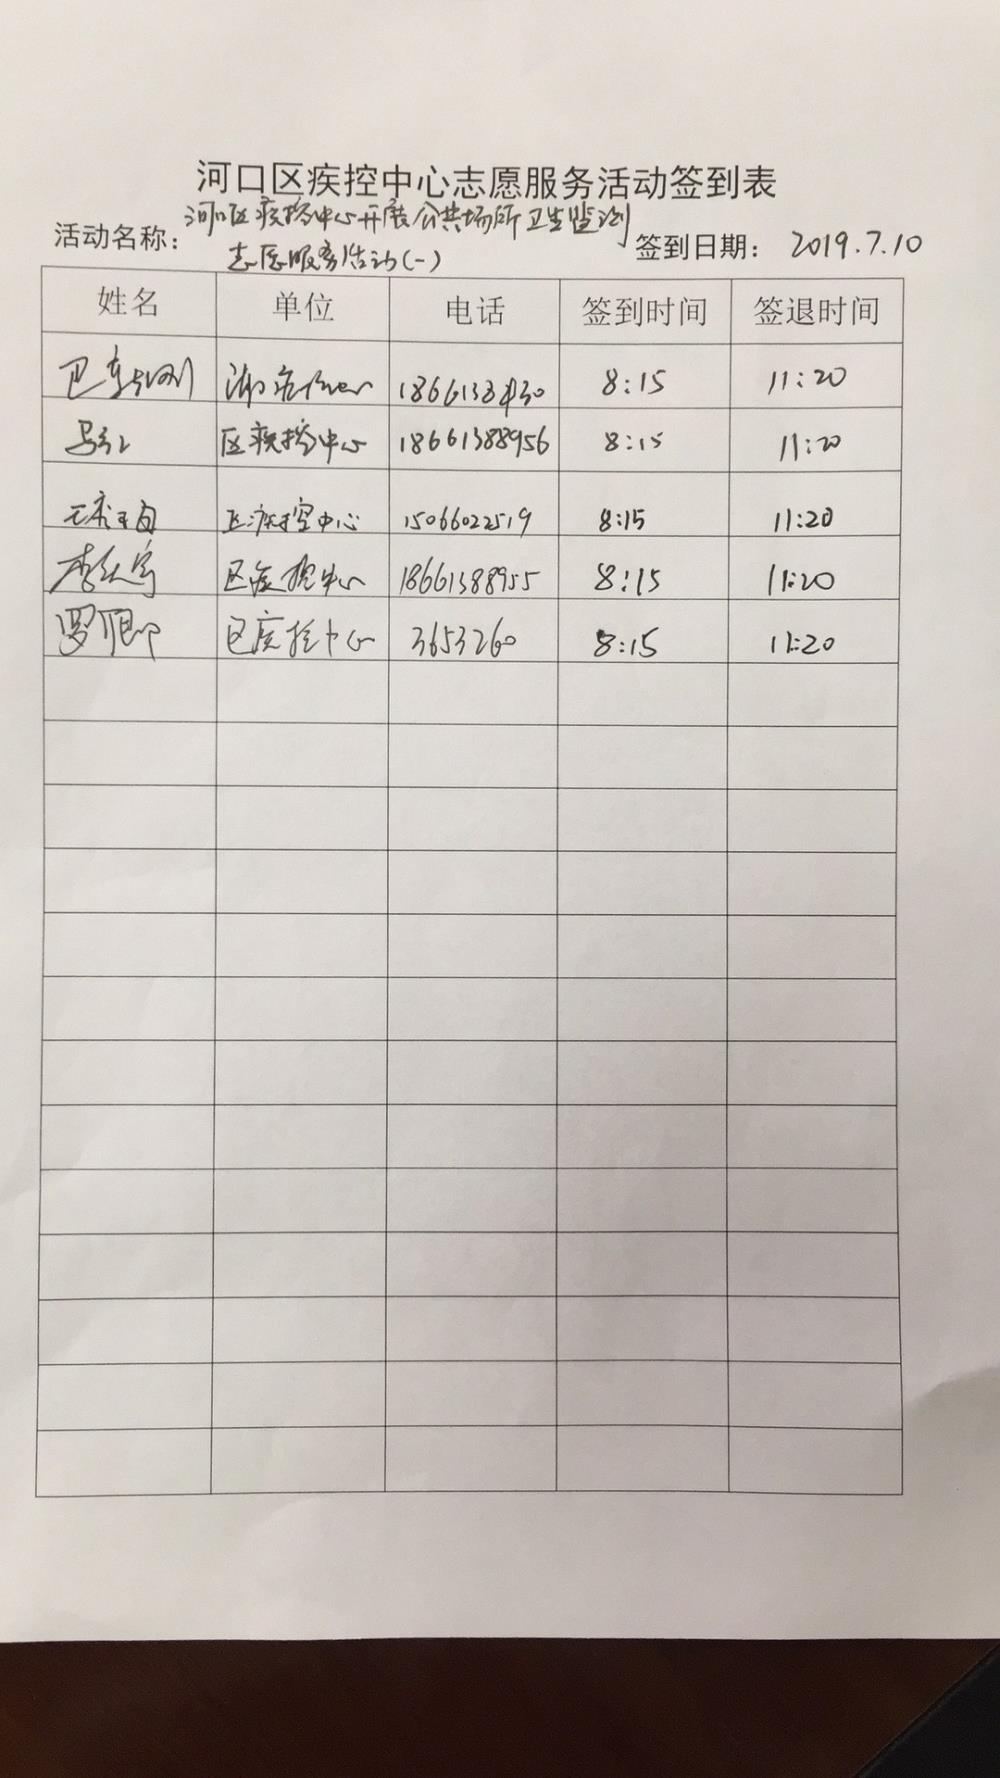 河口区疾控中心志愿服务活动签到表
活动名称：河口区疾控中心开展公共场所卫生监测 签到日期： 2019.7.10
志愿服务活动(一)
姓名 单位 电话 签到时间 签退时间
8:15 11:20
区疾控中心 18661388956 8:15 11:20
区疾控中心 15066022519 8:15 11:20
区疾控中心 18661388955 8:15 11:20
区疾控中心 3653260 8:15 11:20